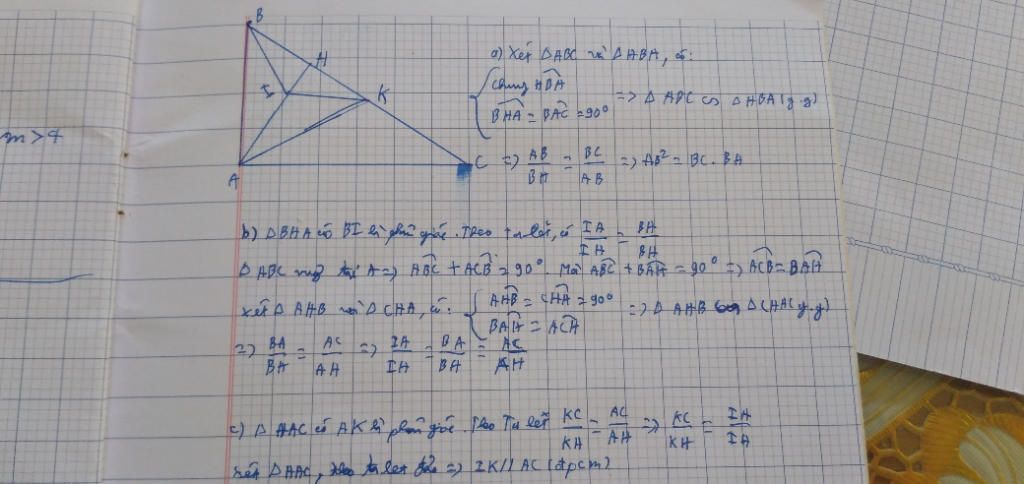 m > 4
B
H
I
K
A
C
a) Xét △ABC và △HBA, có:
chung HBA
BHA = BAC = 90° => △ABC ∽ △HBA (g.g)
=> AB/BH = BC/AB => AB² = BC . BH
b) △BHA có BI là phân giác. Theo Ta lét, có IA/IH = BA/BH
△ABC vuông tại A => ABC + ACB = 90°. Mà ABC + BAH = 90° => ACB = BAH
Xét △AHB và △CHA, có: AHB = CHA = 90°
BAH = ACH => △AHB ∽ △CHA (g.g)
=> BA/BH = AC/AH => IA/IH = BA/BH = AC/AH
c) △HAC có AK là phân giác. Theo Ta lét KC/KH = AC/AH => KC/KH = IA/IH
Xét △HAC, theo ta let đảo => IK // AC (đpcm)